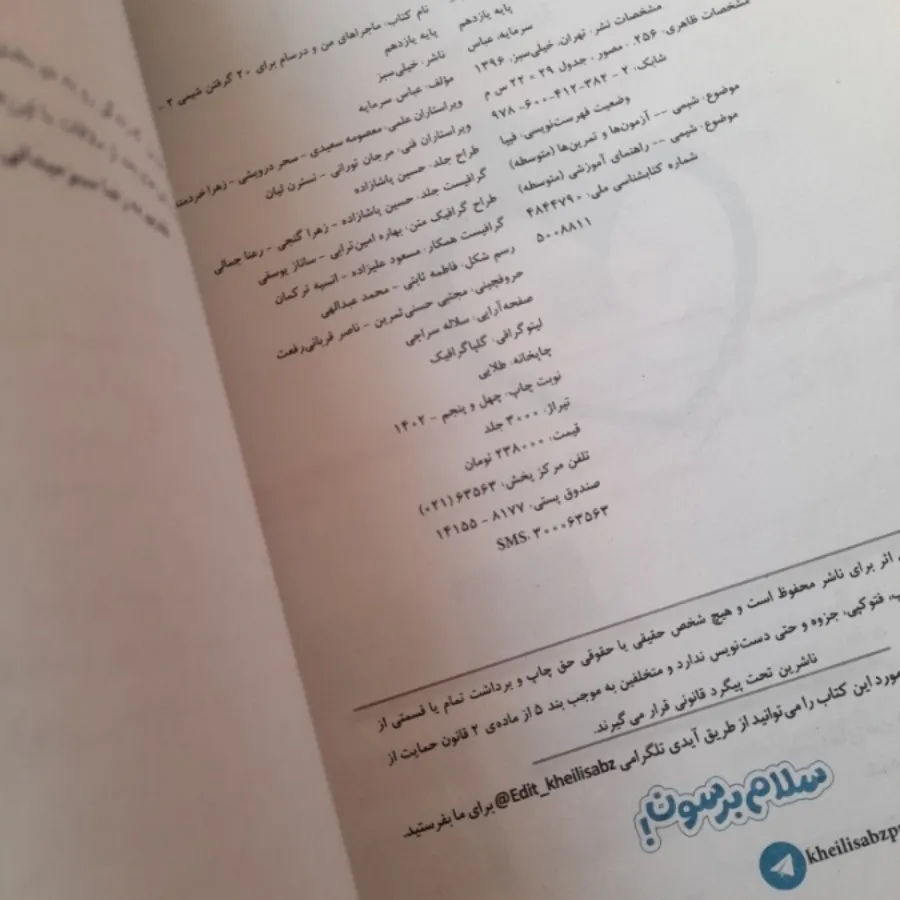 سرمایه، عباس
پایه یازدهم
مشخصات نشر: تهران، خیلی‌سبز، ۱۳۹۶
مشخصات ظاهری: ۲۵۶. : مصور : جدول ۲۹ × ۲۲ س م
شابک: ۲ - ۳۸۲-۴۱۲-۶۰۰- ۹۷۸
وضعیت فهرست‌نویسی: فیپا
موضوع: شیمی -- آزمون‌ها و تمرین‌ها (متوسطه)
موضوع: شیمی -- راهنمای آموزشی (متوسطه)
شماره کتابشناسی ملی: ۴۸۴۴۷۹۰
۵۰۰۸۸۱۱
نام کتاب: ماجراهای من و درسام برای ۲۰ گرفتن شیمی ۲ -
پایه یازدهم
ناشر: خیلی‌سبز
مؤلف: عباس سرمایه
ویراستاران علمی: معصومه سعیدی - سحر درویشی - زهرا خردمند
ویراستاران فنی: مرجان تورانی - نسترن لیان
طراح جلد: حسین پاشازاده
گرافیست جلد: حسین پاشازاده - زهرا گنجی - رعنا جمالی
طراح گرافیک متن: بهاره امین‌ترابی - ساناز یوسفی
گرافیست همکار: مسعود علیزاده - انسیه ترکمان
رسم شکل: فاطمه ثابتی - محمد عبدالهی
حروفچینی: مجتبی حسنی‌تمرین - ناصر قربانی‌رفعت
صفحه‌آرایی: سلاله سراجی
لیتوگرافی: گلپاگرافیک
چاپخانه: طلایی
نوبت چاپ: چهل و پنجم - ۱۴۰۲
تیراژ: ۳۰۰۰ جلد
قیمت: ۲۳۸۰۰۰ تومان
تلفن مرکز پخش: ۶۳۵۶۳ (۰۲۱)
صندوق پستی: ۸۱۷۷ - ۱۴۱۵۵
SMS: ۳۰۰۰۶۳۵۶۳
اثر برای ناشر محفوظ است و هیچ شخص حقیقی یا حقوقی حق چاپ و برداشت تمام یا قسمتی از
فتوکپی، جزوه و حتی دست‌نویس ندارد و متخلفین به موجب بند ۵ از ماده‌ی ۲ قانون حمایت از
ناشرین تحت پیگرد قانونی قرار می‌گیرند.
مورد این کتاب را می‌توانید از طریق آیدی تلگرامی @Edit_kheilisabz برای ما بفرستید.
سلام برسون!
kheilisabzp